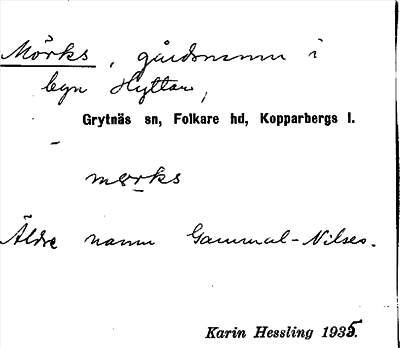 Mörks, gårdsnamn i
byn Hyttan,
Grytnäs sn, Folkare hd, Kopparbergs l.
mørks
Äldre namn Gammal-Nilses.
Karin Hessling 1935.